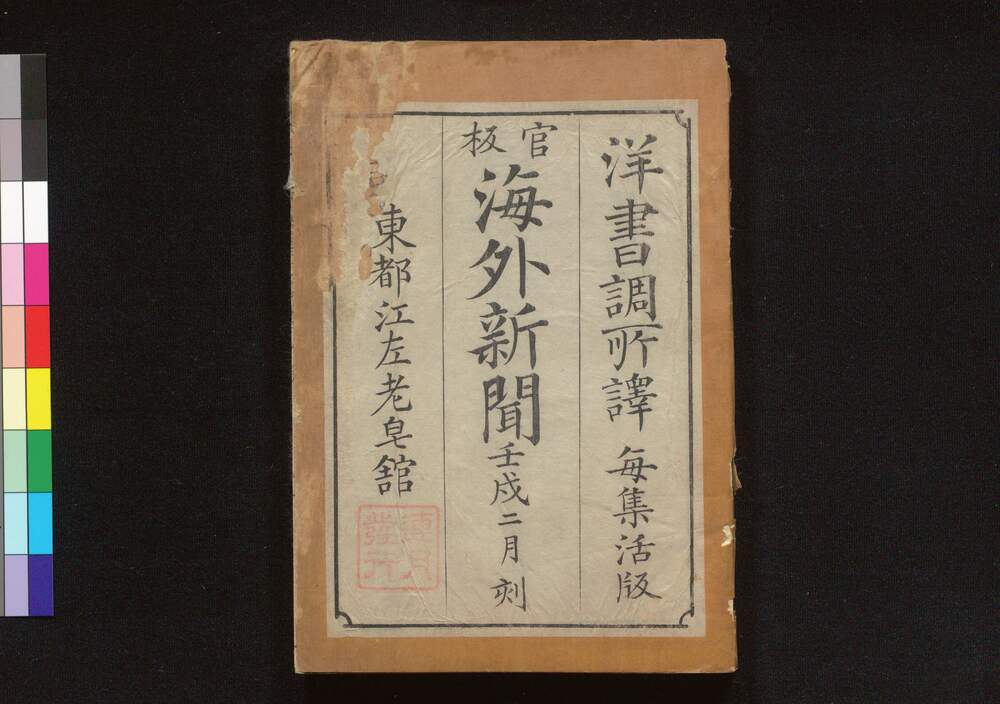 洋書調所譯 毎集活版
官板
海外新聞 壬戌二月刻
東都江左老皂舘